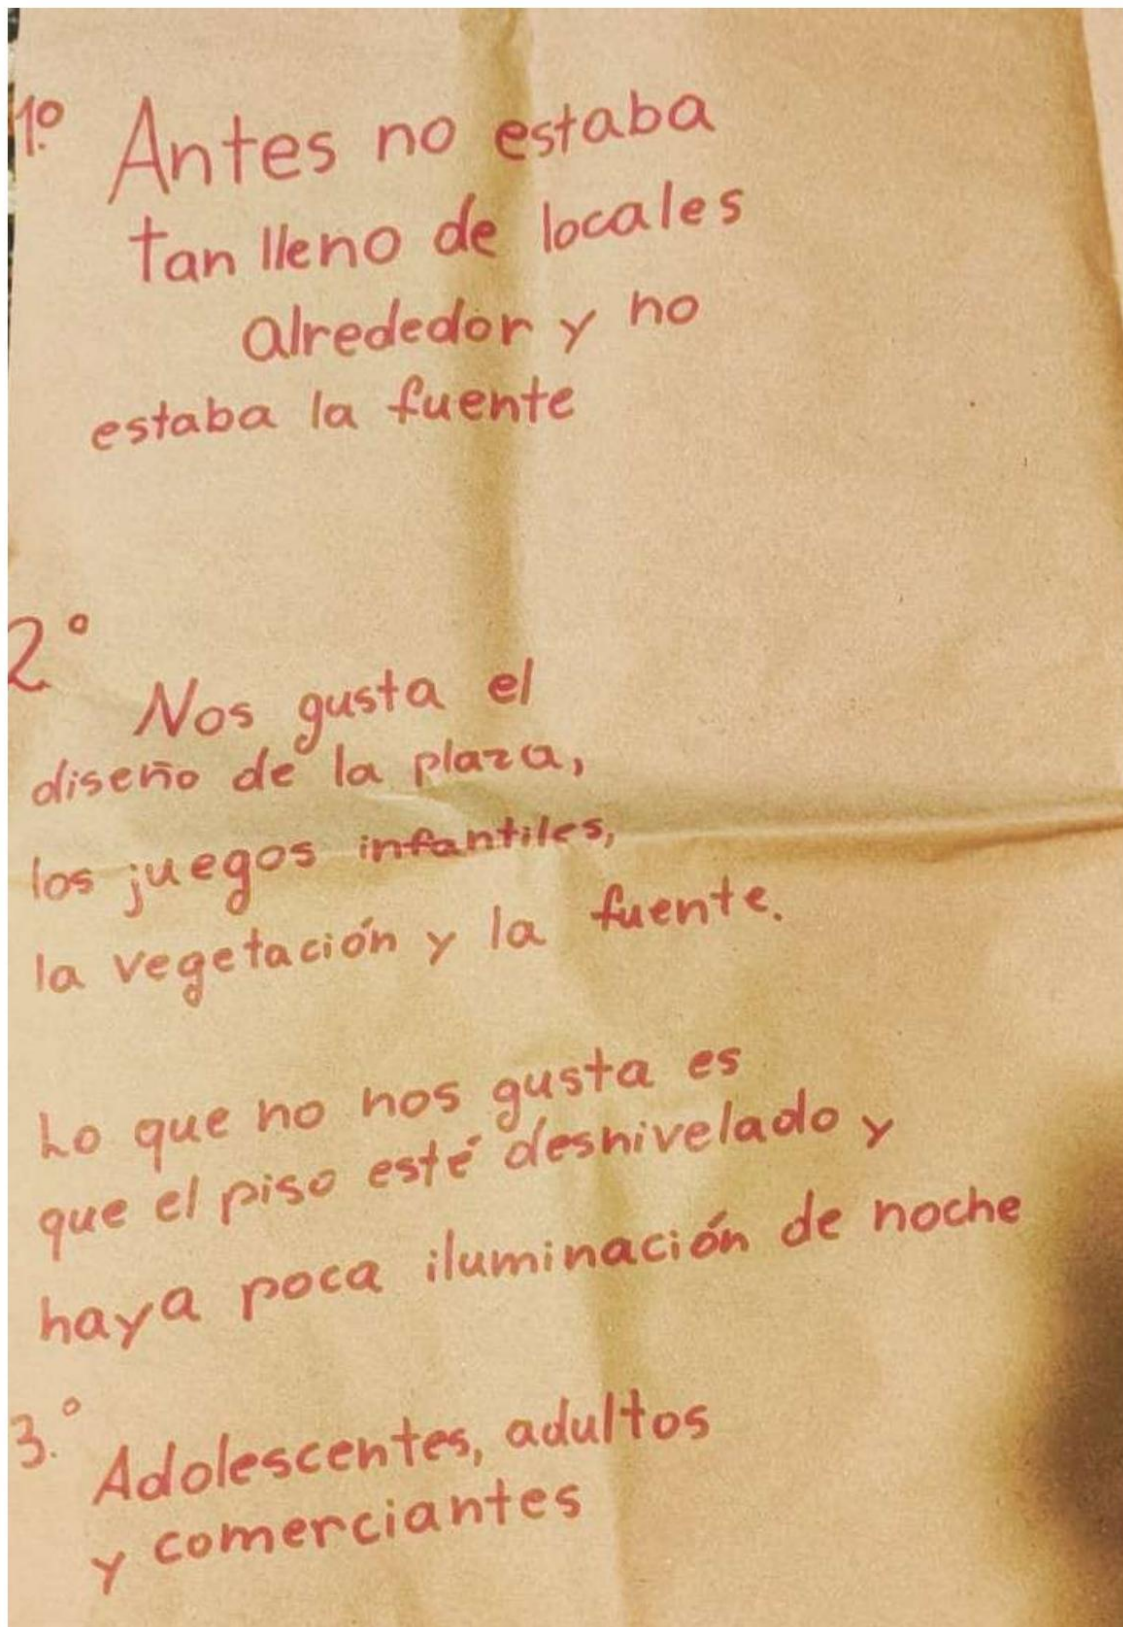 1º Antes no estaba
tan lleno de locales
alrededor y no
estaba la fuente
2°
Nos gusta el
diseño de la plaza,
los juegos infantiles,
la vegetación y la fuente.
Lo que no nos gusta es
que el piso esté desnivelado y
que haya poca iluminación de noche
3.° Adolescentes, adultos
y comerciantes